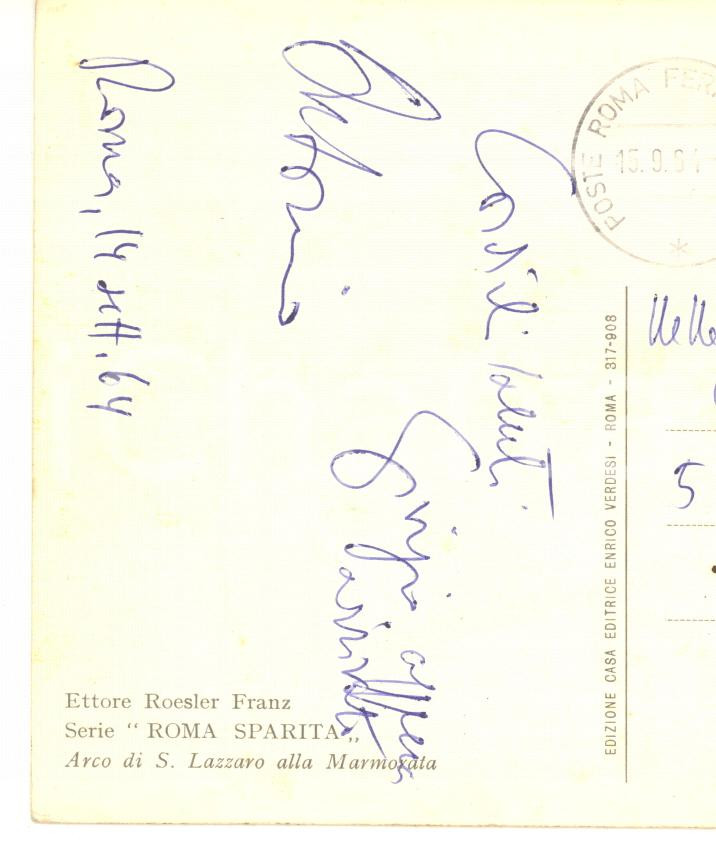 Roma, 14 sett. 64
Cordiali saluti
POSTE ROMA FER
15.9.64
5
EDIZIONE CASA EDITRICE ENRICO VERDESI - ROMA - 317-908
Ettore Roesler Franz
Serie “ ROMA SPARITA „
Arco di S. Lazzaro alla Marmorata